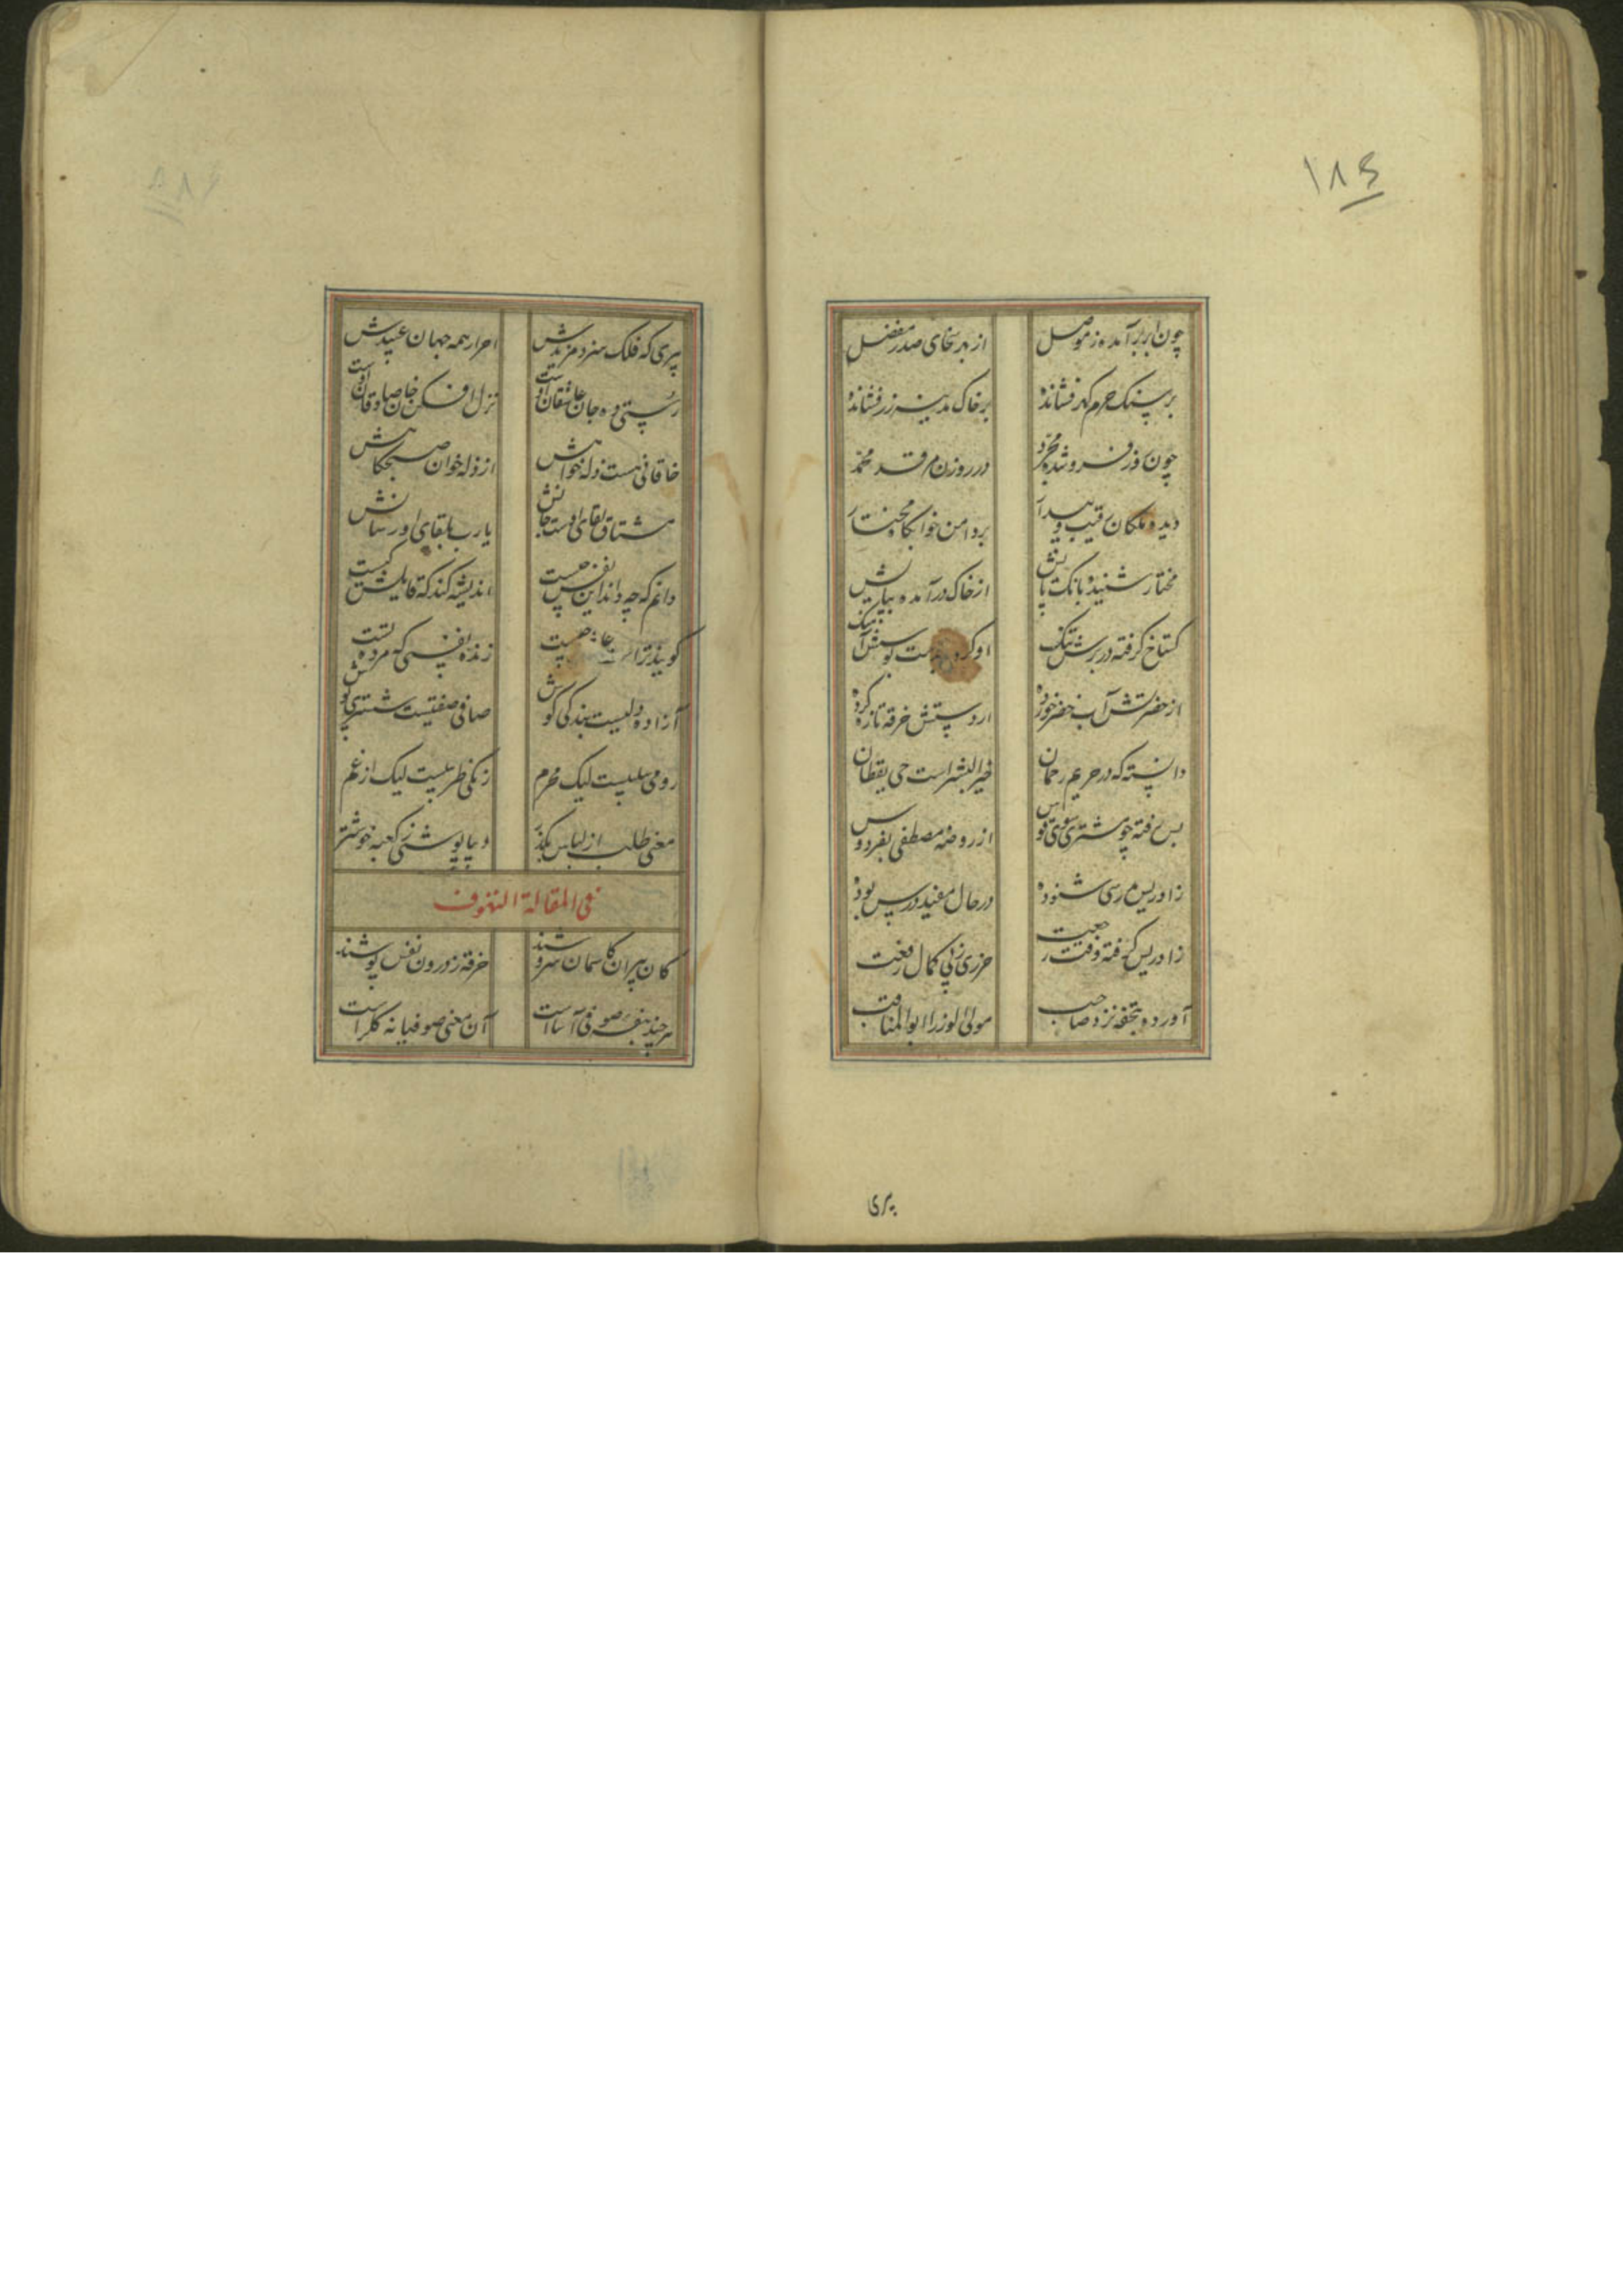 ۱۸۴
چون ابر برآمده ز موصل از بهر سخای صدر مفضل
بر سنک حرم کهر فشانده بر خاک مدینه زر فشانده
چون خور فرو شده مجرد در روزن مرقد محمد
دیده ملکان رقیب و بیدار بر دامن خوابکاه مختار
مختار شنیده بانک پایش از خاک درآمده بپایش
کستاخ گرفته در برش تنک او کرده بدست بوسش آهنک
از حضرتش آب خضر خورده از دستش خرقه تازه کرده
دانسته که در حریم رحمان خیر البشر است حی یقظان
پس رفته چو مشتری سوی قوس از روضه مصطفی بفردوس
ز ادریس مدرسی شنوده در حال مفید درس بوده
ز ادریس کرفته وقت رجعت حرزی ز پی کمال رفعت
آورده بتحفه نزد صاحب مولی الوزرا ابوالمناقب
پیری
پیری که فلک سزد مریدش احرار همه جهان عبیدش
رستی ده جان عاشقان اوست نزل افکن خان صادقان اوست
خاقانی هست زله خواهش از زله خوان صبحکاهش
مشتاق لقای اوست جانش یارب بلقای او رسانش
دانم که چه داند این نفس چیست اندیشه کند که قایلش کیست
کویند ترا چیست زنده نفسی که مرده تست
آزاده دلیست بندکی کوش صافی صفتیست شستری پوش
رومی سلبیست لیک محرم زنکی طربیست لیک از غم
معنی طلب از لباس بکذر دیبا پوشی ز کعبه خوشتر
فی المقالة التصوف
کان پیران کاسمان سروشند خرقه ز درون نفس پوشند
هر چند بنفشه صوفی آساست آن معنی صوفیانه کل راست